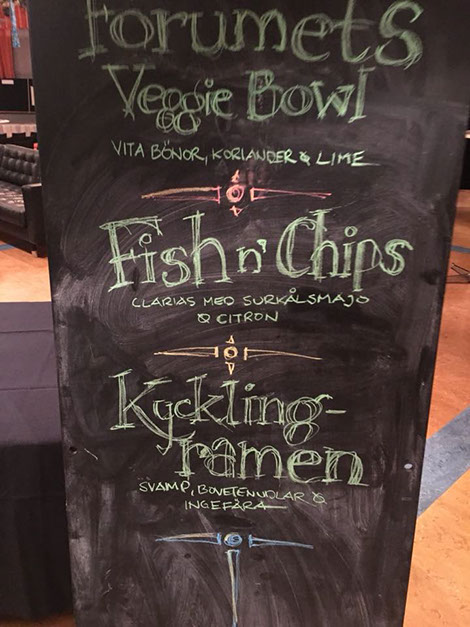 Forumets
Veggie Bowl
VITA BÖNOR, KORIANDER & LIME
Fish n' Chips
CLARIAS MED SURKÅLSMAJO
& CITRON
Kyckling-
ramen
SVAMP, BOVETENUDLAR &
INGEFÄRA